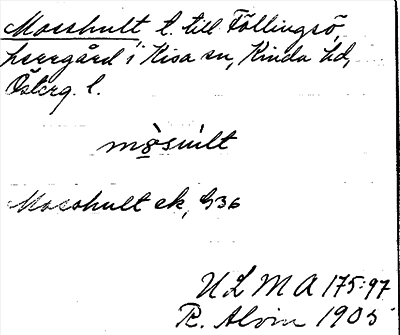 Mosshult t. till Föllingsö,
herrgård i Kisa sn, Kinda hd,
Österg. l.
Mosshult ek, G36
ULMA 175:97
R. Alvin 1905